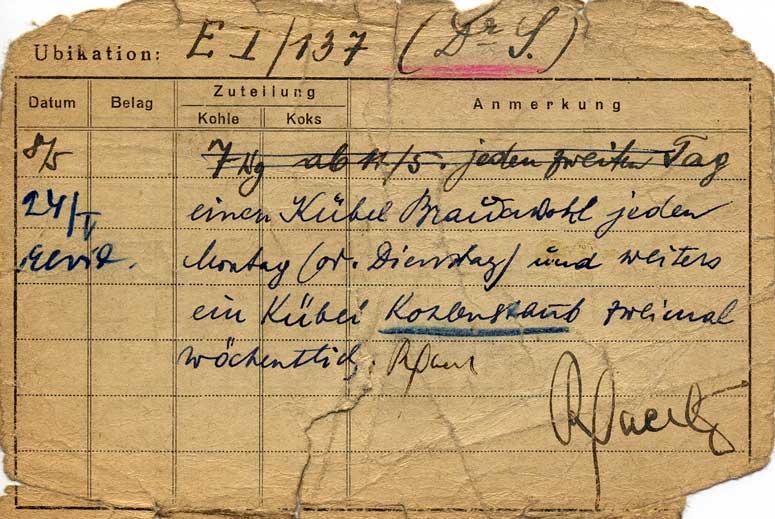 Ubikation: E I/137 (Dr S.)
Datum Belag Zuteilung Anmerkung
Kohle Koks
8/5 7 kg ab 11/5. jeden zweiten Tag
24/V einen Kübel Braunkohl jeden
revid. Montag (od. Dienstag) und weiters
ein Kübel Kohlenstaub zweimal
wöchentlich.